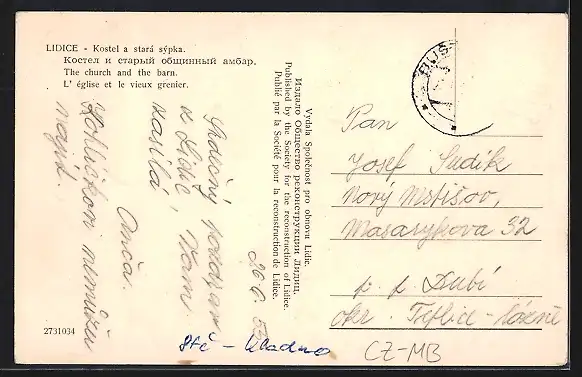 LIDICE - Kostel a stará sýpka.
Костел и старый общинный амбар.
The church and the barn.
L' église et le vieux grenier.
Vydala Společnost pro obnovu Lidic.
Издало Общество реконструкции Лидиц.
Published by the Society for the reconstruction of Lidice.
Publié par la Société pour la reconstruction de Lidice.
Srdečný pozdrav
z Lidic, Vám
zasílá
Anča.
nemůžu
najít.
26 6
Pan
Josef Sudík
Nový Mstišov,
Masarykova 32
p. p. Dubí
okr. Teplice-Lázně
2731034
Kladno
CZ-MB